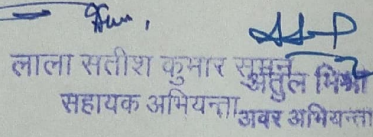 लाला सतीश कुमार सुमन
अतुल मिश्रा
सहायक अभियन्ता
अवर अभियन्ता